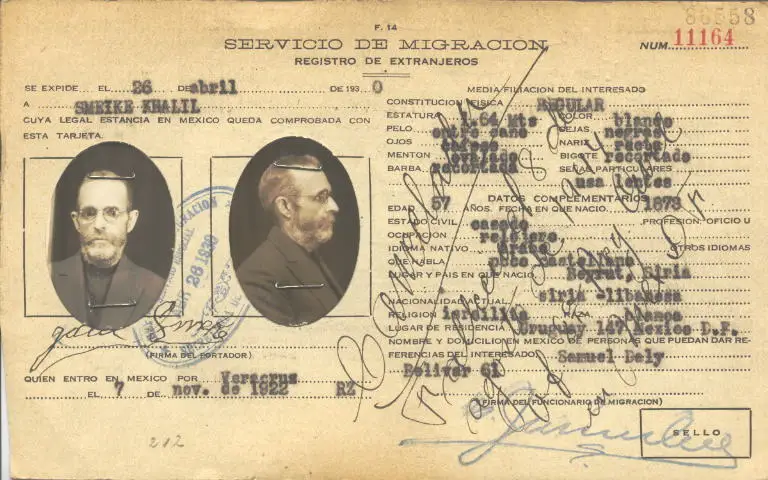 86558
F. 14
SERVICIO DE MIGRACION
NUM. 11164
REGISTRO DE EXTRANJEROS
SE EXPIDE EL 26 DE abril DE 193 0
A SMEIKE KHALIL
CUYA LEGAL ESTANCIA EN MEXICO QUEDA COMPROBADA CON
ESTA TARJETA.
(FIRMA DEL PORTADOR)
QUIEN ENTRO EN MEXICO POR Veracruz
EL 7 DE nov. de 1922 RZ
212
MEDIA FILIACION DEL INTERESADO
CONSTITUCION FISICA REGULAR
ESTATURA 1.64 Mts COLOR blanco
PELO entre cano CEJAS negras
OJOS cafees NARIZ recta
MENTON ovalado BIGOTE recortado
BARBA recortada SEÑAS PARTICULARES
usa lentes
DATOS COMPLEMENTARIOS
EDAD 57 AÑOS. FECHA EN QUE NACIO 1873
ESTADO CIVIL casado PROFESION, OFICIO U
OCUPACION
IDIOMA NATIVO arabe OTROS IDIOMAS
QUE HABLA poco castellano
LUGAR Y PAIS EN QUE NACIO Beyrut, Siria
NACIONALIDAD ACTUAL siria -libanesa
RELIGION isrélita blanca
LUGAR DE RESIDENCIA Uruguay 147 Mexico D.F.
NOMBRE Y DOMICILIO EN MEXICO DE PERSONAS QUE PUEDAN DAR RE-
FERENCIAS DEL INTERESADO Samuel Dely
Bolivar 61
(FIRMA DEL FUNCIONARIO DE MIGRACION)
SELLO